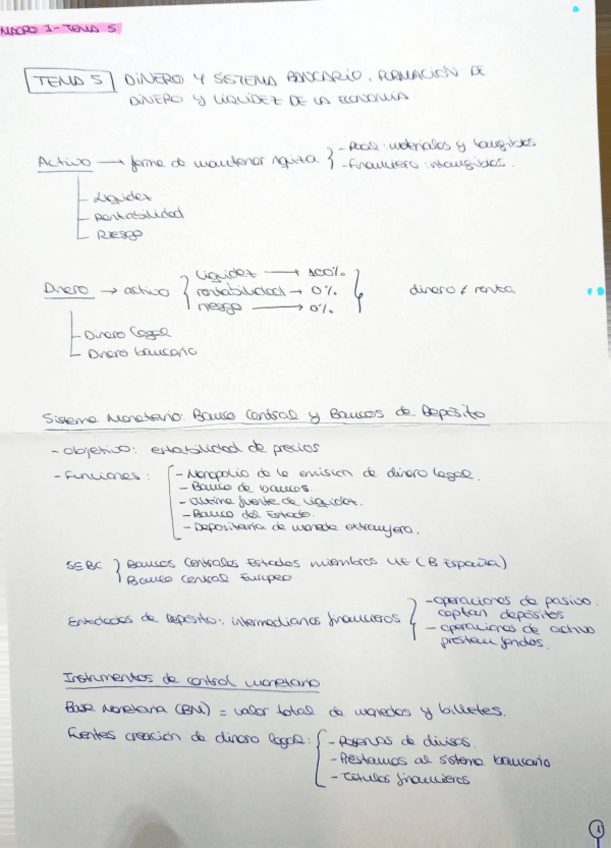 MACRO 1 - TEMA 5
TEMA 5 DINERO Y SISTEMA BANCARIO. FORMACIÓN DE
DINERO Y LIQUIDEZ DE LA ECONOMIA
Activo → forma de mantener riqueza } - Real: materiales y tangibles
- Financiero: intangibles.
- Liquidez
- Rentabilidad
- Riesgo
Dinero → activo { liquidez → 100%
rentabilidad → 0% } dinero ≠ renta
riesgo → 0%
- Dinero legal
- Dinero bancario
Sistema Monetario: Banco Central y Bancos de Depósito
- Objetivo: estabilidad de precios
- Funciones: - Monopolio de la emisión de dinero legal.
- Banco de bancos.
- Última fuente de liquidez.
- Banco del Estado.
- Depositaria de moneda extranjera.
SEBC } Bancos Centrales Estados miembros UE (B España)
Banco Central Europeo
Entidades de Depósito: intermediarios financieros } - operaciones de pasivo.
captan depósitos
- operaciones de activo
prestan fondos.
Instrumentos de control monetario
Base Monetaria (BM) = valor total de monedas y billetes.
Fuentes creación de dinero legal: { - Reservas de divisas.
- Préstamos al sistema bancario
- Títulos financieros
1